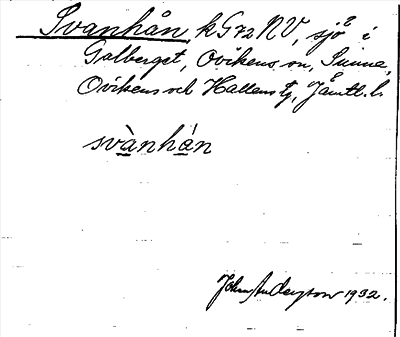 Svanhån, kG72NV, sjö i
Galberget, Ovikens sn, Sunne,
Ovikens och Hallens tg, Jämtl. l.
svànhán
John Anderson 1932.